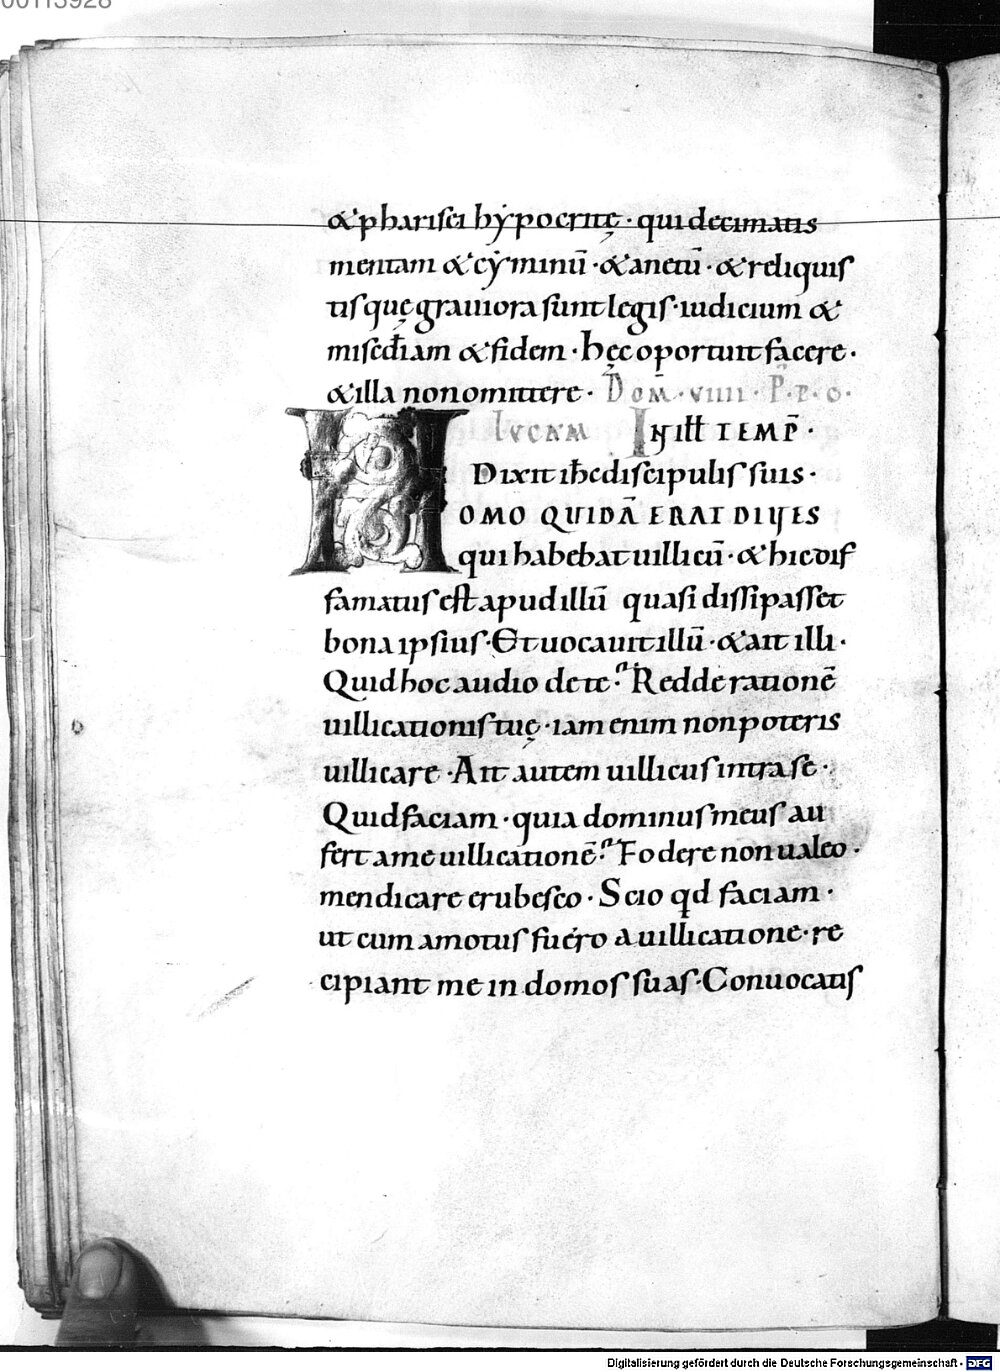 00113928
& pharisei hẏpocritę · qui decimatis
mentam & cẏminū · & anetū · & reliquis
tis quę grauiora sunt legis · iudicium &
misc̄diam & fidem · hęc oportuit facere ·
& illa non omittere · Dom̄ · VIIII · P̄ · P · O ·
LUCAM IN ill̄ TEMP̄ ·
Dixit ih̄c discipulis suis ·
HOMO QUIDĀ ERAT DIVES
qui habebat uillicū · & hic dif
famatus est apud illū quasi dissipasset
bona ipsius · Et uocauit illū · & ait illi ·
Quid hoc audio de te? Redde rationē
uillicationis tuę · iam enim non poteris
uillicare · Ait autem uillicus intra se ·
Quid faciam · quia dominus meus au
fert a me uillicationē? Fodere non ualeo ·
mendicare erubesco · Scio qd faciam ·
ut cum amotus fuero a uillicatione · re
cipiant me in domos suas · Conuocatis
Digitalisierung gefördert durch die Deutsche Forschungsgemeinschaft - DFG